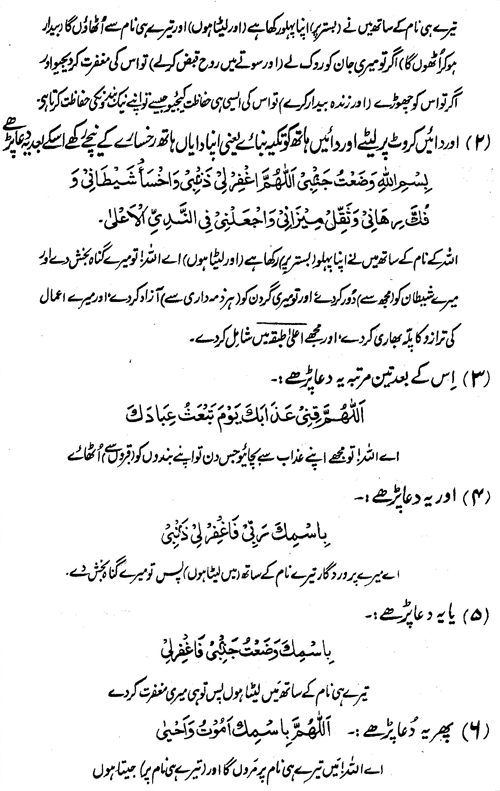 تیرے ہی نام کے ساتھ میں نے (بستر پر) اپنا پہلو رکھا ہے (اور لیٹا ہوں) اور تیرے ہی نام سے اُٹھاؤں گا (بیدار
ہو کر اُٹھوں گا) اگر تو میری جان کو روک لے (اور سوتے میں روح قبض کر لے) تو اس کی مغفرت کر دیجیو اور
اگر تو اس کو چھوڑے (اور زندہ بیدار کرے) تو اس کی ایسی ہی حفاظت کیجیو جیسے تو اپنے نیک بندوں کی حفاظت کرتا ہے۔
(۲) اور دائیں کروٹ پر لیٹے اور دائیں ہاتھ کو تکیہ بنائے یعنی اپنا دایاں ہاتھ رخسار کے نیچے رکھے اسکے بعد یہ دعا پڑھے
بِسْمِ اللهِ وَضَعْتُ جَنْبِیْ اَللّٰهُمَّ اغْفِرْ لِیْ ذَنْبِیْ وَاخْسَأْ شَیْطَانِیْ وَ
فُكَّ رِهَانِیْ وَثَقِّلْ مِیْزَانِیْ وَاجْعَلْنِیْ فِی النَّدِیِّ الْاَعْلٰی۔
اللہ کے نام کے ساتھ میں نے اپنا پہلو (بستر پر) رکھا ہے (اور لیٹا ہوں) اے اللہ! تو میرے گناہ بخش دے اور
میرے شیطان کو (مجھ سے) دُور کر دے اور تو میری گردن کو (ہر ذمہ داری سے) آزاد کر دے، اور میرے اعمال
کی ترازو کا پلّہ بھاری کر دے، اور مجھے اعلیٰ طبقہ میں شامل کر دے۔
(۳) اِس کے بعد تین مرتبہ یہ دعا پڑھے :۔
اَللّٰهُمَّ قِنِیْ عَذَابَكَ یَوْمَ تَبْعَثُ عِبَادَكَ
اے اللہ! تو مجھے اپنے عذاب سے بچائیو جس دن تو اپنے بندوں کو (قبروں سے) اُٹھائے
(۴) اور یہ دعا پڑھے :۔
بِاسْمِكَ رَبِّیْ فَاغْفِرْ لِیْ ذَنْبِیْ
اے میرے پروردگار تیرے نام کے ساتھ (میں لیٹا ہوں) پس تو میرے گناہ بخش دے۔
(۵) یا یہ دعا پڑھے :۔
بِاسْمِكَ وَضَعْتُ جَنْبِیْ فَاغْفِرْ لِیْ
تیرے ہی نام کے ساتھ میں لیٹا ہوں پس تو ہی میری مغفرت کر دے
(۶) پھر یہ دُعا پڑھے :۔ اَللّٰهُمَّ بِاسْمِكَ اَمُوْتُ وَاَحْیٰی
اے اللہ! میں تیرے ہی نام پر مَروں گا اور (تیرے ہی نام پر) جیتا ہوں